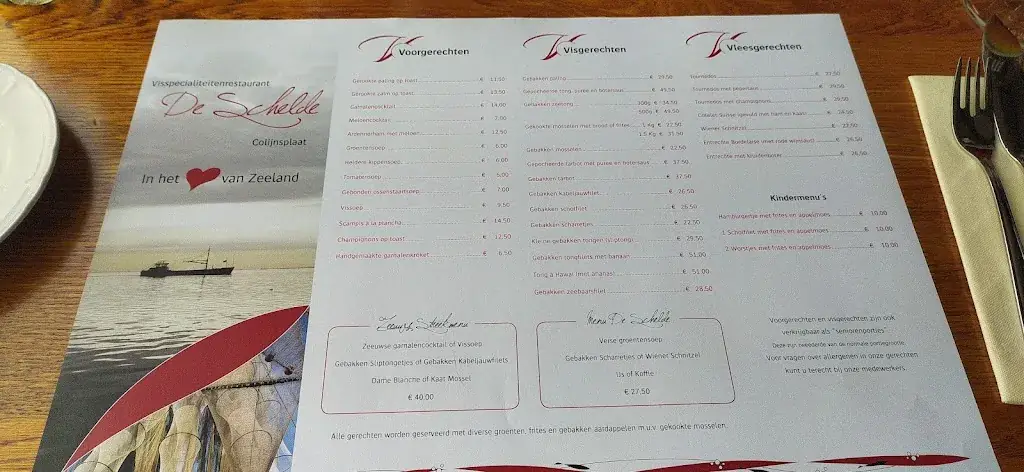 Visspecialiteitenrestaurant
De Schelde
Colijnsplaat
In het van Zeeland
Voorgerechten
Gerookte paling op toast € 11.50
Gerookte zalm op toast € 13.50
Garnalencocktail € 14.00
Meloencocktail € 7.00
Ardennerham met meloen € 12.50
Groentensoep € 6.00
Heldere kippensoep € 6.00
Tomatensoep € 6.00
Gebonden ossenstaartsoep € 7.00
Vissoep € 9.50
Scampi's a la plancha € 14.50
Champignons op toast € 12.50
Handgemaakte garnalenkroket € 6.50
Visgerechten
Gebakken paling € 29.50
Gepocheerde tong, puree en botersaus € 49.50
Gebakken zeetong 300g € 34.50
500g € 49.50
Gekookte mosselen met brood of frites 1 Kg € 22.50
1.5 Kg € 31.50
Gebakken mosselen € 22.50
Gepocheerde tarbot met puree en botersaus € 37.50
Gebakken tarbot € 37.50
Gebakken kabeljauwfilet € 26.50
Gebakken scholfilet € 26.50
Gebakken scharretjes € 22.50
Kleine gebakken tongen (sliptong) € 29.50
Gebakken tongfilets met banaan € 51.00
Tong a Hawaï (met ananas) € 51.00
Gebakken zeebaarsfilet € 28.50
Vleesgerechten
Tournedos € 37.50
Tournedos met pepersaus € 39.50
Tournedos met champignons € 39.50
Cotelet Suisse (gevuld met ham en kaas) € 24.50
Wiener Schnitzel € 23.50
Entrecôte Bordelaise (met rode wijnsaus) € 26.50
Entrecôte met kruidenboter € 26.50
Kindermenu's
Hamburgertje met frites en appelmoes € 10.00
1 Scholfilet met frites en appelmoes € 10.00
2 Worstjes met frites en appelmoes € 10.00
Zeeuws Streekmenu
Zeeuwse garnalencocktail of Vissoep
Gebakken Sliptongetjes of Gebakken Kabeljauwfilets
Dame Blanche of Kaat Mossel
€ 40.00
Menu De Schelde
Verse groentensoep
Gebakken Scharretjes of Wiener Schnitzel
IJs of Koffie
€ 27.50
Voorgerechten en visgerechten zijn ook
verkrijgbaar als "seniorenporties".
Deze zijn tweederde van de normale portiegrootte.
Voor vragen over allergenen in onze gerechten
kunt u terecht bij onze medewerkers.
Alle gerechten worden geserveerd met diverse groenten, frites en gebakken aardappelen m.u.v. gekookte mosselen.